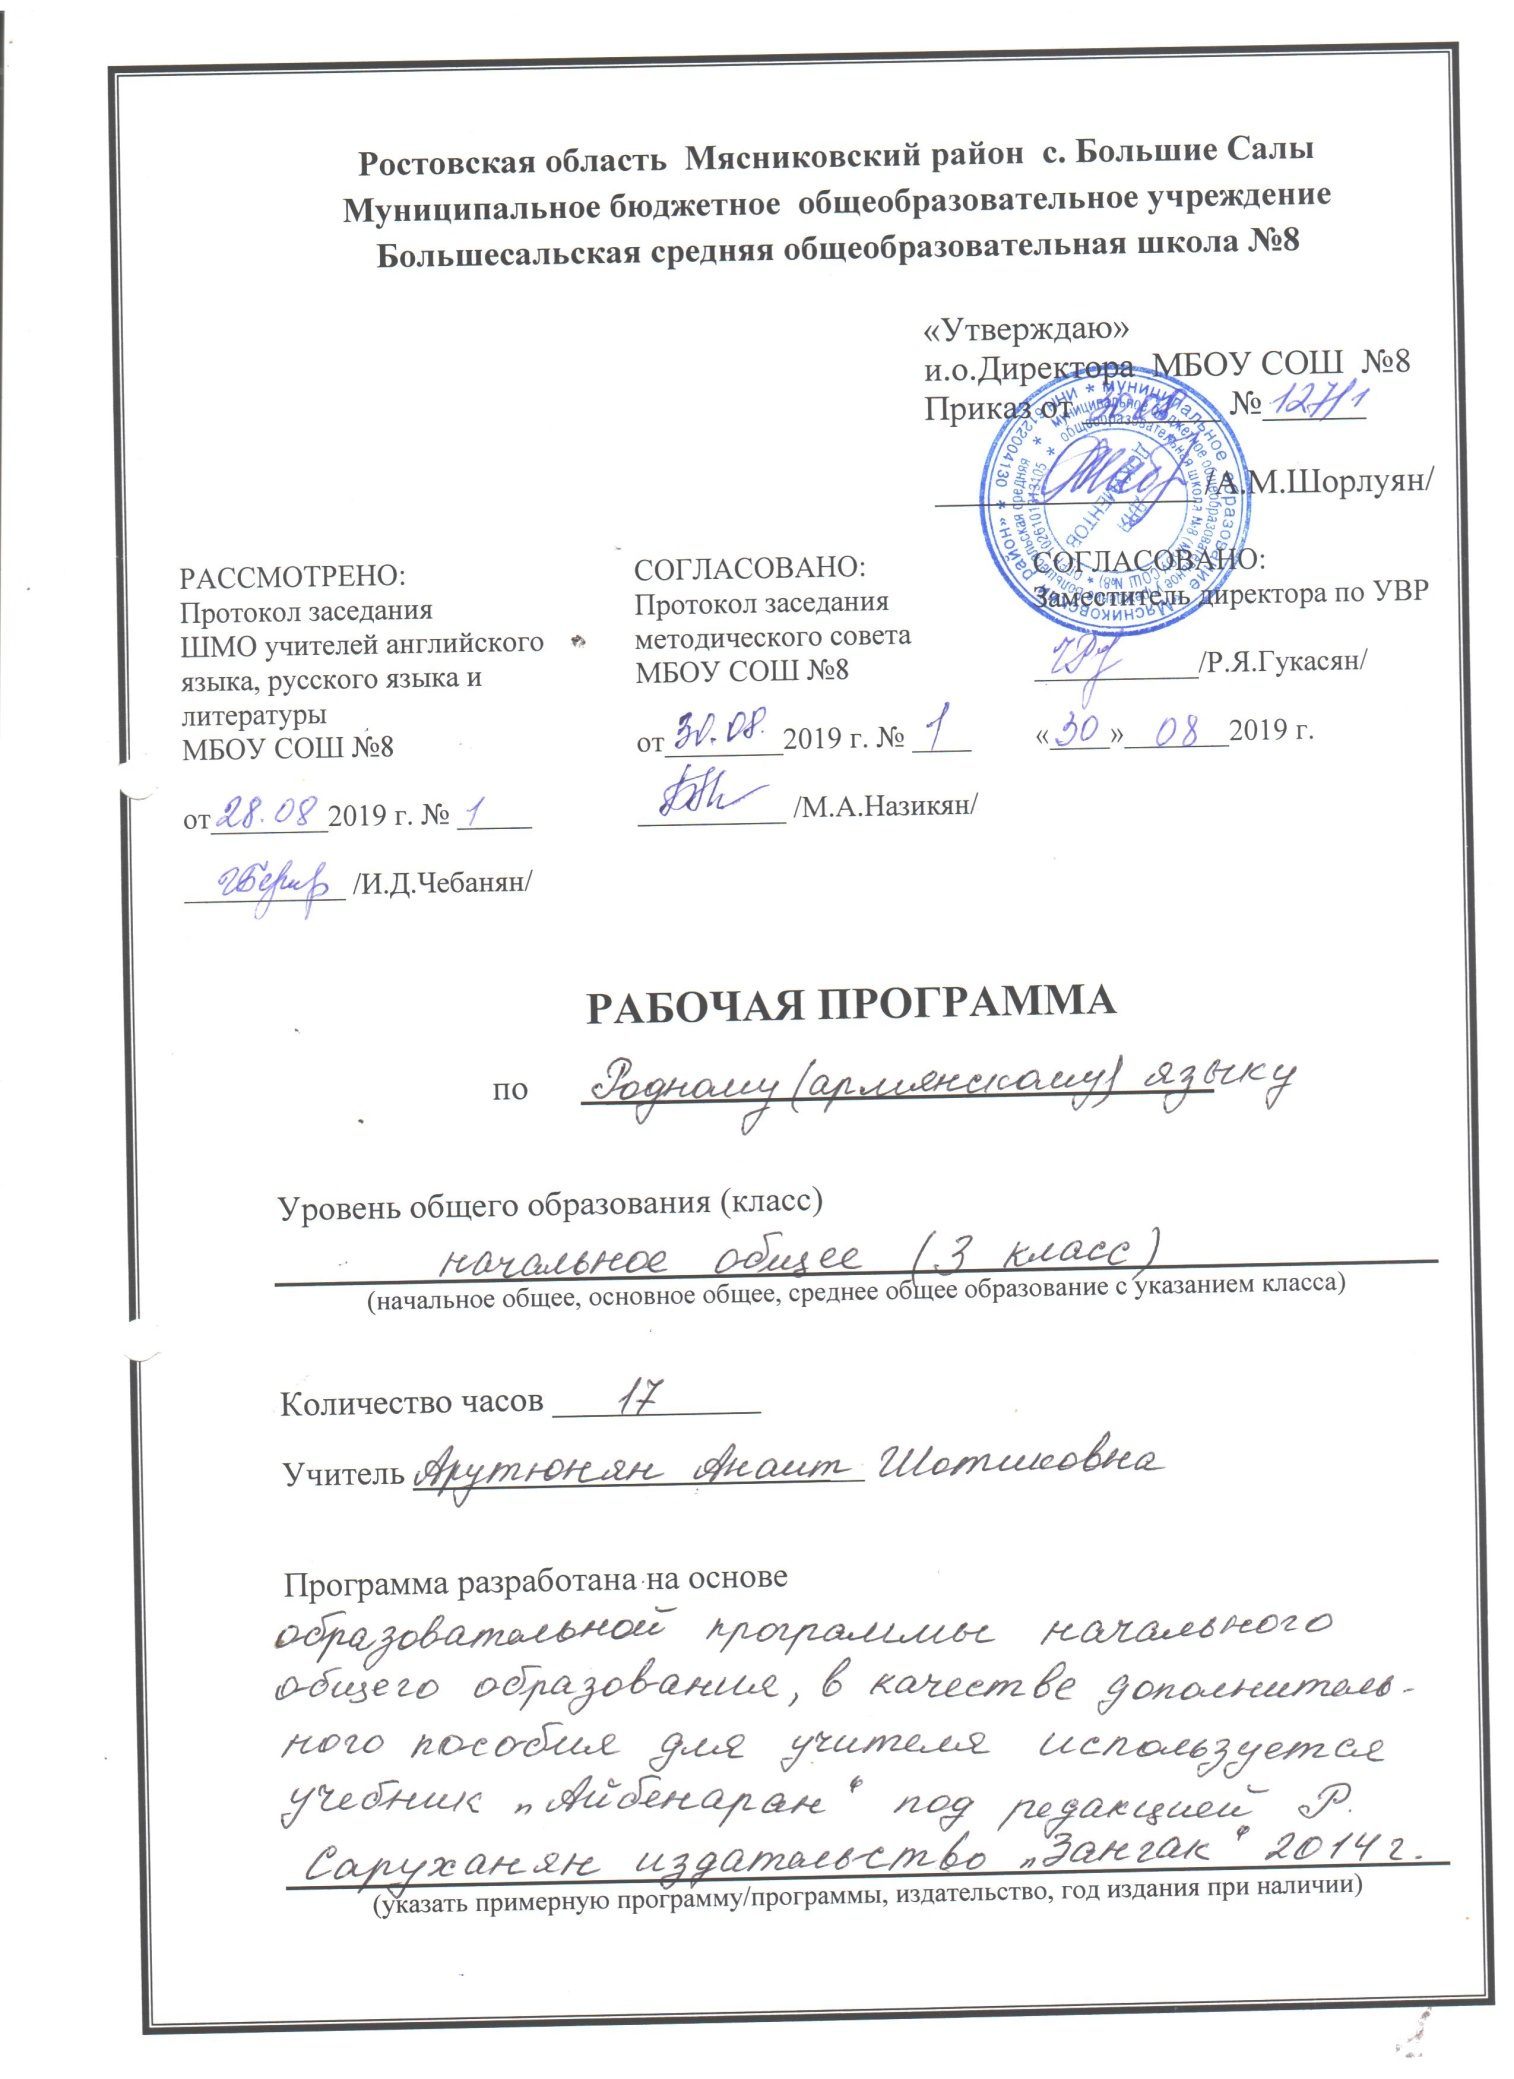 Ростовская область Мясниковский район с. Большие Салы
Муниципальное бюджетное общеобразовательное учреждение
Большесальская средняя общеобразовательная школа №8
«Утверждаю»
и.о.Директора МБОУ СОШ №8
Приказ от 30.08 № 127/1
/А.М.Шорлуян/
ДЛЯ
ДОКУМЕНТОВ
РАССМОТРЕНО:
Протокол заседания
ШМО учителей английского
языка, русского языка и
литературы
МБОУ СОШ №8
от 28.08 2019 г. № 1
/И.Д.Чебанян/
СОГЛАСОВАНО:
Протокол заседания
методического совета
МБОУ СОШ №8
от 30.08. 2019 г. № 1
/М.А.Назикян/
СОГЛАСОВАНО:
Заместитель директора по УВР
/Р.Я.Гукасян/
«30» 08 2019 г.
РАБОЧАЯ ПРОГРАММА
по Родному (армянскому) языку
Уровень общего образования (класс)
начальное общее (3 класс)
(начальное общее, основное общее, среднее общее образование с указанием класса)
Количество часов 17
Учитель Арутюнян Анаит Шотиковна
Программа разработана на основе
образовательной программы начального
общего образования, в качестве дополнитель-
ного пособия для учителя используется
учебник „Айбенаран“ под редакцией Р.
Саруханян издательство „Зангак“ 2014 г.
(указать примерную программу/программы, издательство, год издания при наличии)